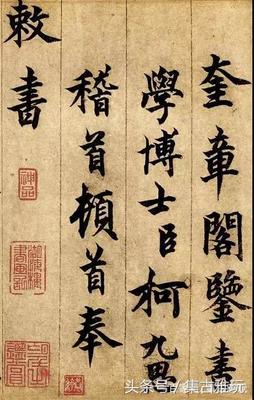 奎章閣鑒書
學博士臣柯九思
稽首頓首奉
敕書
神品
头条号 / 集古雅玩